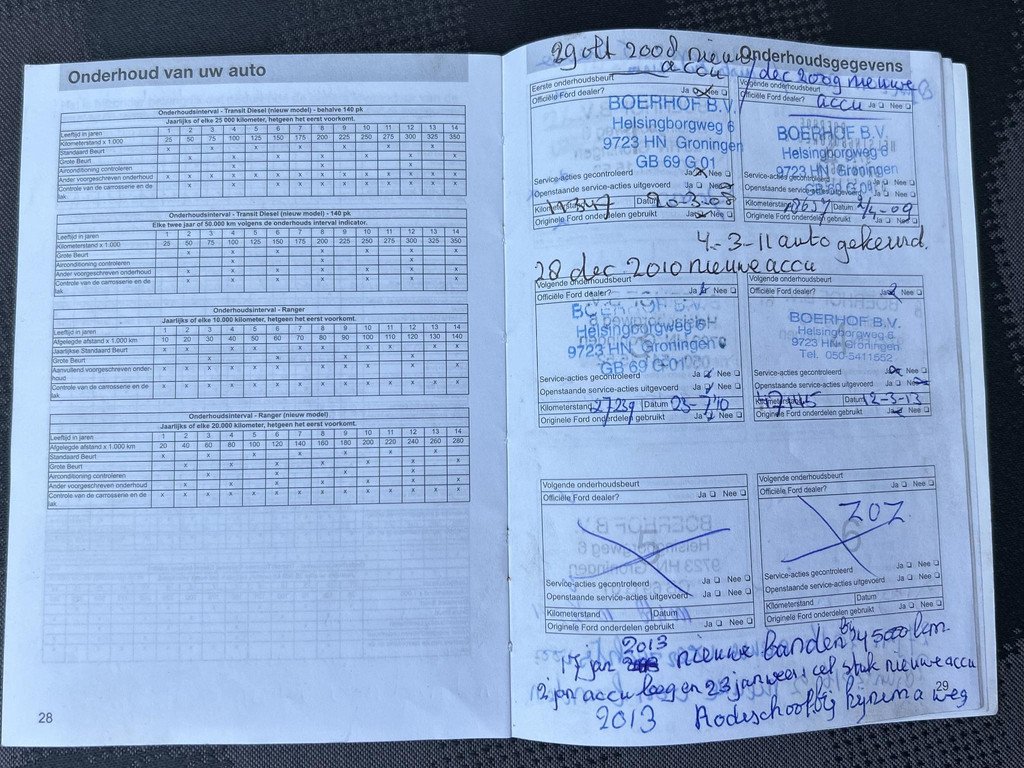 Onderhoud van uw auto
Onderhoudsinterval - Transit Diesel (nieuw model) - behalve 140 pk
Jaarlijks of elke 25 000 kilometer, hetgeen het eerst voorkomt.
Leeftijd in jaren 1 2 3 4 5 6 7 8 9 10 11 12 13 14
Kilometerstand x 1.000 25 50 75 100 125 150 175 200 225 250 275 300 325 350
Standaard Beurt x x x x x x x
Grote Beurt x x x x x x x
Airconditioning controleren x x x
Ander voorgeschreven onderhoud x x x x x x x x x x x x x x
Controle van de carrosserie en de lak.
Onderhoudsinterval - Transit Diesel (nieuw model) - 140 pk
Elke twee jaar of 50.000 km volgens de onderhouds interval indicator.
Leeftijd in jaren 1 2 3 4 5 6 7 8 9 10 11 12 13 14
Kilometerstand x 1.000 25 50 75 100 125 150 175 200 225 250 275 300 325 350
Grote Beurt x x x x x x x
Airconditioning controleren
Ander voorgeschreven onderhoud x x x x x x x
Controle van de carrosserie en de lak.
Onderhoudsinterval - Ranger
Jaarlijks of elke 10.000 kilometer, hetgeen het eerst voorkomt.
Leeftijd in jaren 1 2 3 4 5 6 7 8 9 10 11 12 13 14
Afgelegde afstand x 1.000 km 10 20 30 40 50 60 70 80 90 100 110 120 130 140
Jaarlijkse Standaard Beurt
Grote Beurt x x x x
Aanvullend voorgeschreven onderhoud
Controle van de carrosserie en de lak.
Onderhoudsinterval - Ranger (nieuw model)
Jaarlijks of elke 20.000 kilometer, hetgeen het eerst voorkomt.
Leeftijd in jaren 1 2 3 4 5 6 7 8 9 10 11 12 13 14
Afgelegde afstand x 1.000 km 20 40 60 80 100 120 140 160 180 200 220 240 260 280
Standaard Beurt x x x x x x x
Grote Beurt x x x x x x x
Airconditioning controleren
Ander voorgeschreven onderhoud
Controle van de carrosserie en de lak. x x x x x x x x x x x x x x
28
Onderhoudsgegevens
29 okt 2008 nieuwe
accu
Eerste onderhoudsbeurt
Officiële Ford dealer? Ja Nee
BOERHOF B.V.
Helsingborgweg 6
9723 HN Groningen
GB 69 G 01
Service-acties gecontroleerd Ja Nee
Openstaande service-acties uitgevoerd Ja Nee
Kilometerstand Datum 20-3-08
Originele Ford onderdelen gebruikt Ja Nee
dec 2009 nieuwe
accu
Volgende onderhoudsbeurt
Officiële Ford dealer? Ja Nee
BOERHOF B.V.
Helsingborgweg 6
9723 HN Groningen
GB 69 G 01
Service-acties gecontroleerd Ja Nee
Openstaande service-acties uitgevoerd Ja Nee
Kilometerstand Datum
Originele Ford onderdelen gebruikt Ja Nee
4-3-11 auto gekeurd.
28 dec 2010 nieuwe accu
Volgende onderhoudsbeurt
Officiële Ford dealer? Ja Nee
BOERHOF B.V.
Helsingborgweg 6
9723 HN Groningen
GB 69 G 01
Service-acties gecontroleerd Ja Nee
Openstaande service-acties uitgevoerd Ja Nee
Kilometerstand 27239 Datum 23-7'10
Originele Ford onderdelen gebruikt Ja Nee
Volgende onderhoudsbeurt
Officiële Ford dealer? Ja Nee
BOERHOF B.V.
Helsingborgweg 6
9723 HN Groningen
Tel. 050-5411552
Service-acties gecontroleerd Ja Nee
Openstaande service-acties uitgevoerd Ja Nee
Kilometerstand Datum 12-3-13
Originele Ford onderdelen gebruikt Ja Nee
Volgende onderhoudsbeurt
Officiële Ford dealer? Ja Nee
5
Service-acties gecontroleerd Ja Nee
Openstaande service-acties uitgevoerd Ja Nee
Kilometerstand Datum
Originele Ford onderdelen gebruikt Ja Nee
Volgende onderhoudsbeurt
Officiële Ford dealer? Ja Nee
ZOZ
6
Service-acties gecontroleerd Ja Nee
Openstaande service-acties uitgevoerd Ja Nee
Kilometerstand Datum
Originele Ford onderdelen gebruikt Ja Nee
2013
17 jan nieuwe banden bij 45000 km.
jan accu leeg en 23 jan weer, cel stuk nieuwe accu
2013 Rodeschool bij weg
29